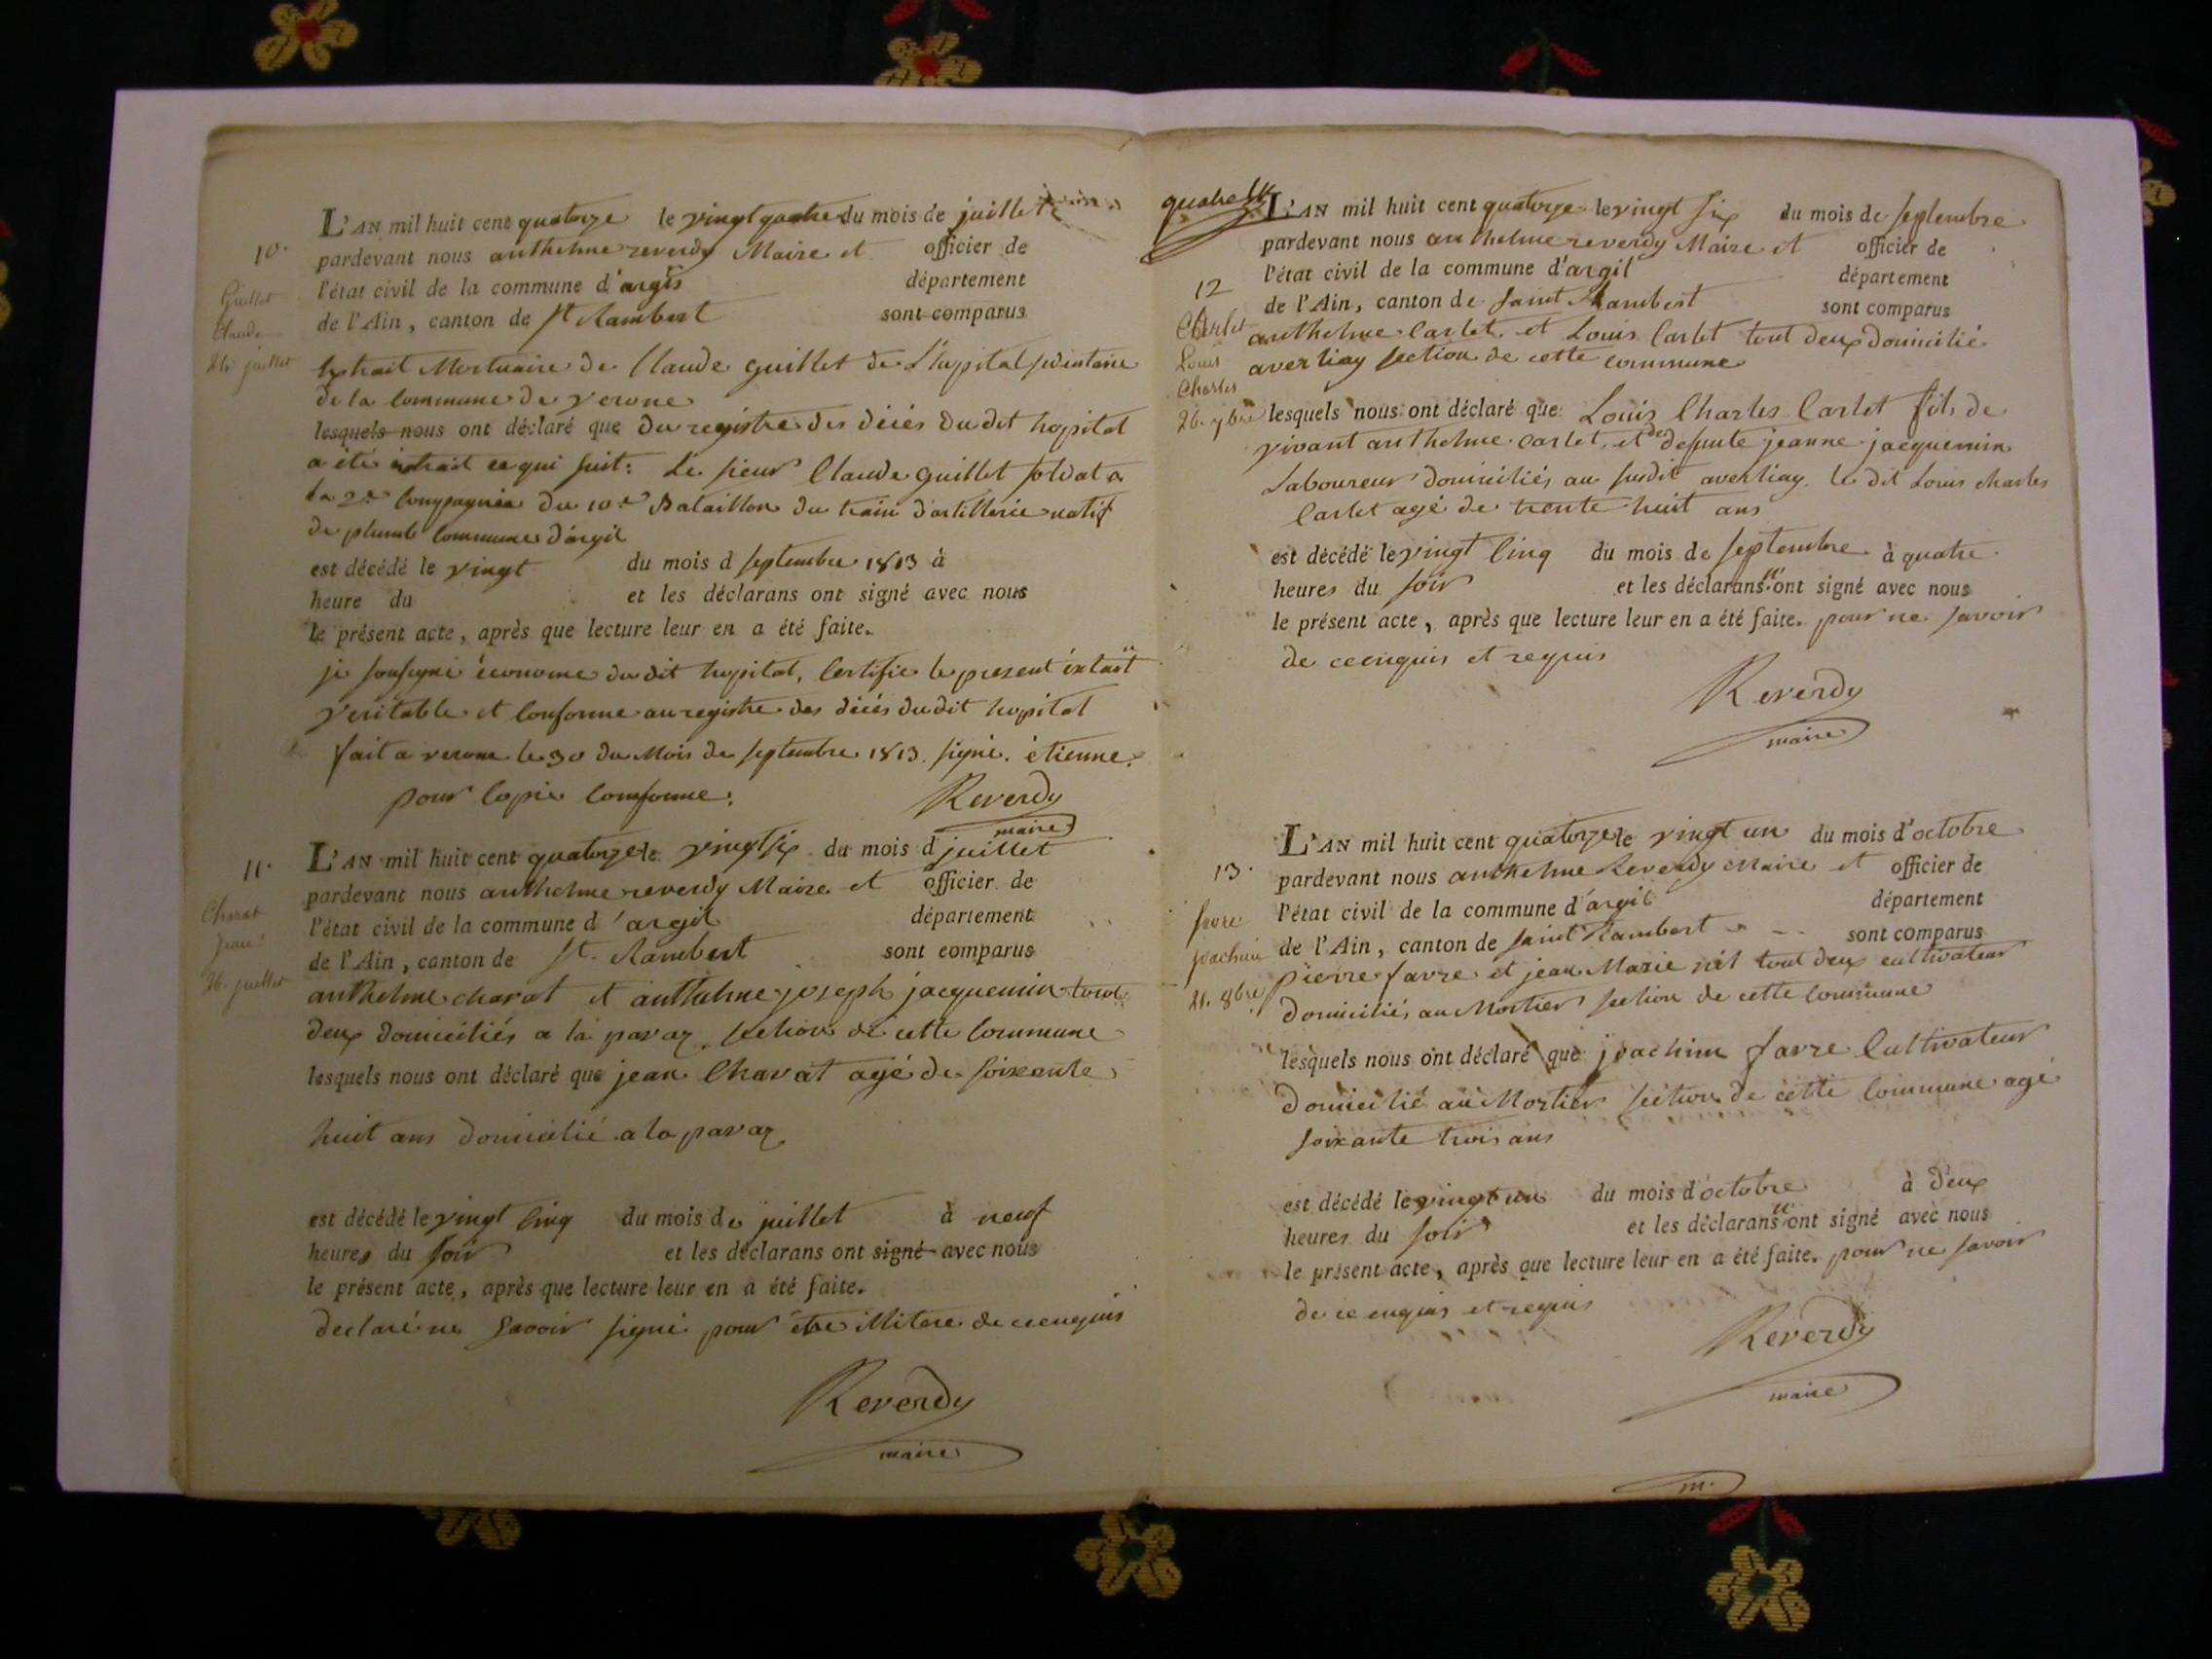 10.
Guillet
Claude
24 juillet
L'AN mil huit cent quatorze le vingt quatre du mois de juillet
pardevant nous anthelme reverdy Maire et officier de
l'état civil de la commune d'argis département
de l'Ain, canton de St Rambert sont comparus
Extrait Mortuaire de Claude guillet de L'hopital
de la Commune de verone
lesquels nous ont déclaré que du registre des décès dudit hopital
a été extrait ce qui suit: Le sieur Claude guillet soldat a
la 2e Compagnie du 10e Bataillon du train d'artillerie natif
de plumb Commune d'argil
est décédé le vingt du mois d septembre 1813 à
heure du et les déclarans ont signé avec nous
le présent acte, après que lecture leur en a été faite.
je soussigné économe du dit hopital, Certifie le present extrait
veritable et Conforme au registre des décès dudit hopital
fait a verone le 30 du Mois de septembre 1813. signé. étienne.
pour Copie Comforme.
Reverdy
maire
11.
Charat
jean
26 juillet
L'AN mil huit cent quatorze le vingt six du mois d juillet
pardevant nous anthelme reverdy Maire et officier de
l'état civil de la commune d'argil département
de l'Ain, canton de St. Rambert sont comparus
anthelme charat et anthelme joseph jacquemin tout
deux domiciliés a la pavaz section de cette Commune
lesquels nous ont déclaré que jean Charat agé de soixante
huit ans domicilié a la pavaz
est décédé le vingt Cinq du mois de juillet à neuf
heures du soir et les déclarans ont signé avec nous
le présent acte, après que lecture leur en a été faite.
declaré ne savoir signé pour être illitere de ce enquis
Reverdy
maire
12
Carlet
Louis
Charles
26. 7bre
L'AN mil huit cent quatorze le vingt six du mois de septembre
pardevant nous anthelme reverdy Maire et officier de
l'état civil de la commune d'argil département
de l'Ain, canton de saint Rambert sont comparus
anthelme Carlet et Louis Carlet tout deux domicilié
averliay section de cette commune
lesquels nous ont déclaré que Louis Charles Carlet fils de
vivant anthelme Carlet, et de defunte jeanne jacquemin
Laboureur domiciliés au susdit averliay. le dit Louis charles
Carlet agé de trente huit ans
est décédé le vingt Cinq du mois de septembre à quatre
heures du soir et les déclarans n'ont signé avec nous
le présent acte, après que lecture leur en a été faite. pour ne savoir
de ce enquis et requis
Reverdy
maire
13.
favre
joachim
21. 8bre
L'AN mil huit cent quatorze le vingt un du mois d'octobre
pardevant nous anthelme Reverdy Maire et officier de
l'état civil de la commune d'argil département
de l'Ain, canton de saint Rambert sont comparus
pierre favre et jean Marie tout deux cultivateur
domiciliés au Mortier section de cette Commune
lesquels nous ont déclaré que joachim favre Cultivateur
domicilié au Mortier section de cette Commune agé
soixante trois ans
est décédé le vingt un du mois d'octobre à deux
heures du soir et les déclarans n'ont signé avec nous
le présent acte, après que lecture leur en a été faite. pour ne savoir
de ce enquis et requis
Reverdy
maire